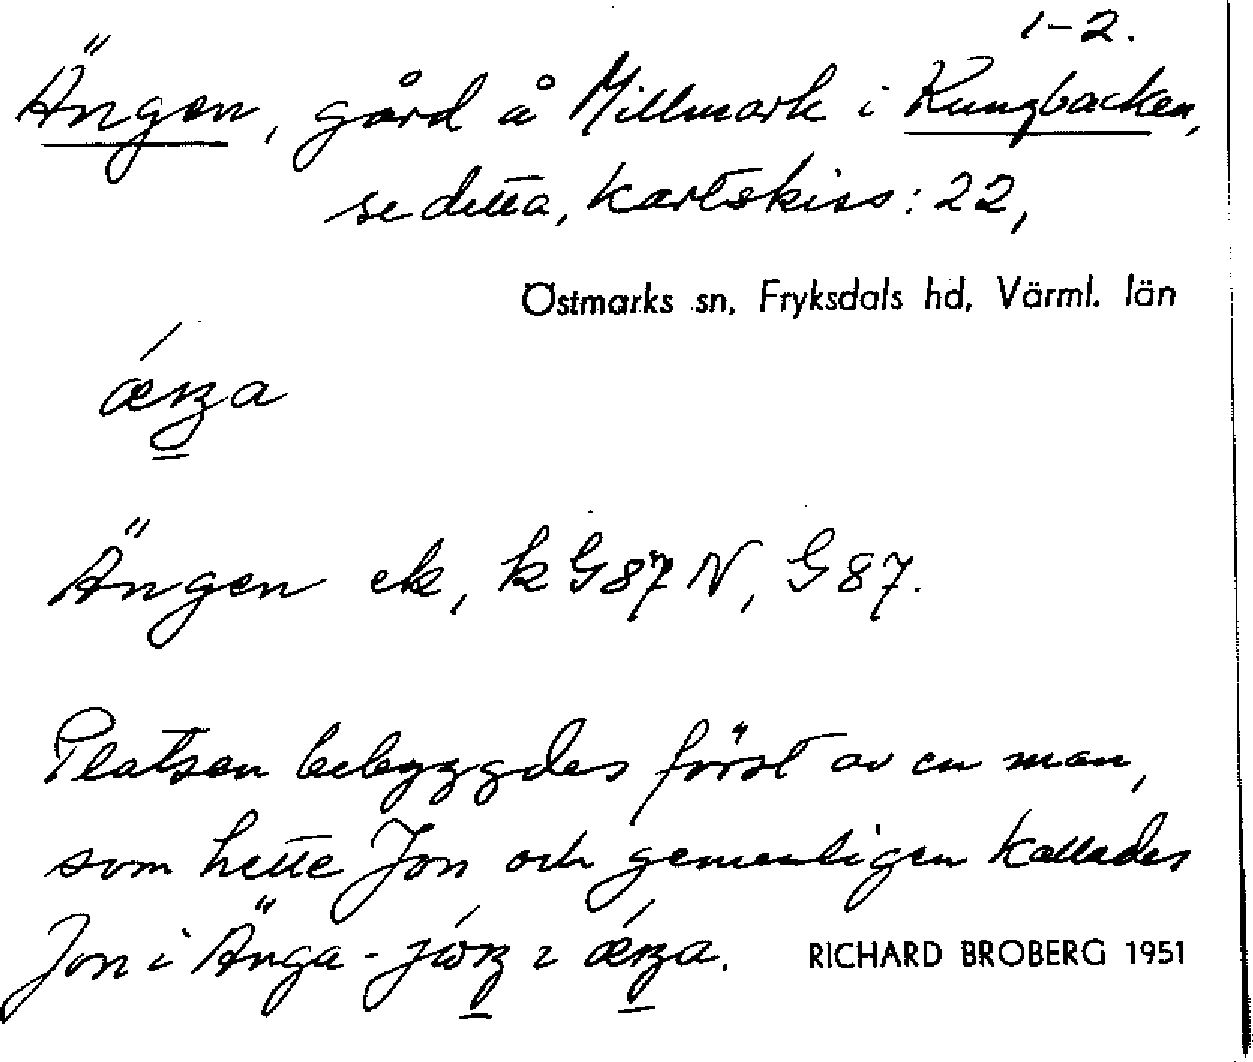 1-2.
Ängen, gård å Millmark i Kungbacken,
se detta, kartskiss: 22,
Östmarks sn, Fryksdals hd, Värml. län
Ängen ek, k G87 N, G 87.
Platsen bebyggdes först av en man,
som hette Jon och gemenligen kallades
Jon i Änga -
RICHARD BROBERG 1951